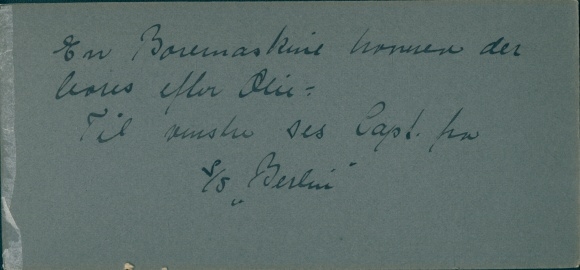 En Boremaskine hvormed der
bores efter Olie:
Til venstre ses Capt. fra
S/S „Berlin"